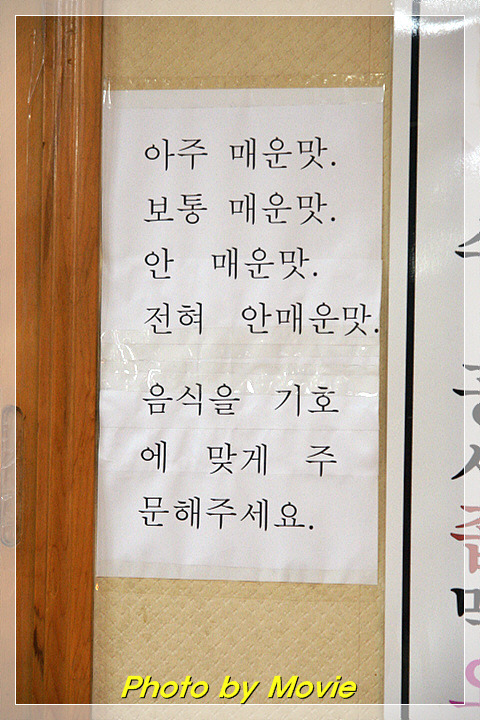 아주 매운맛.
보통 매운맛.
안 매운맛.
전혀 안매운맛.
음식을 기호
에 맞게 주
문해주세요.
Photo by Movie